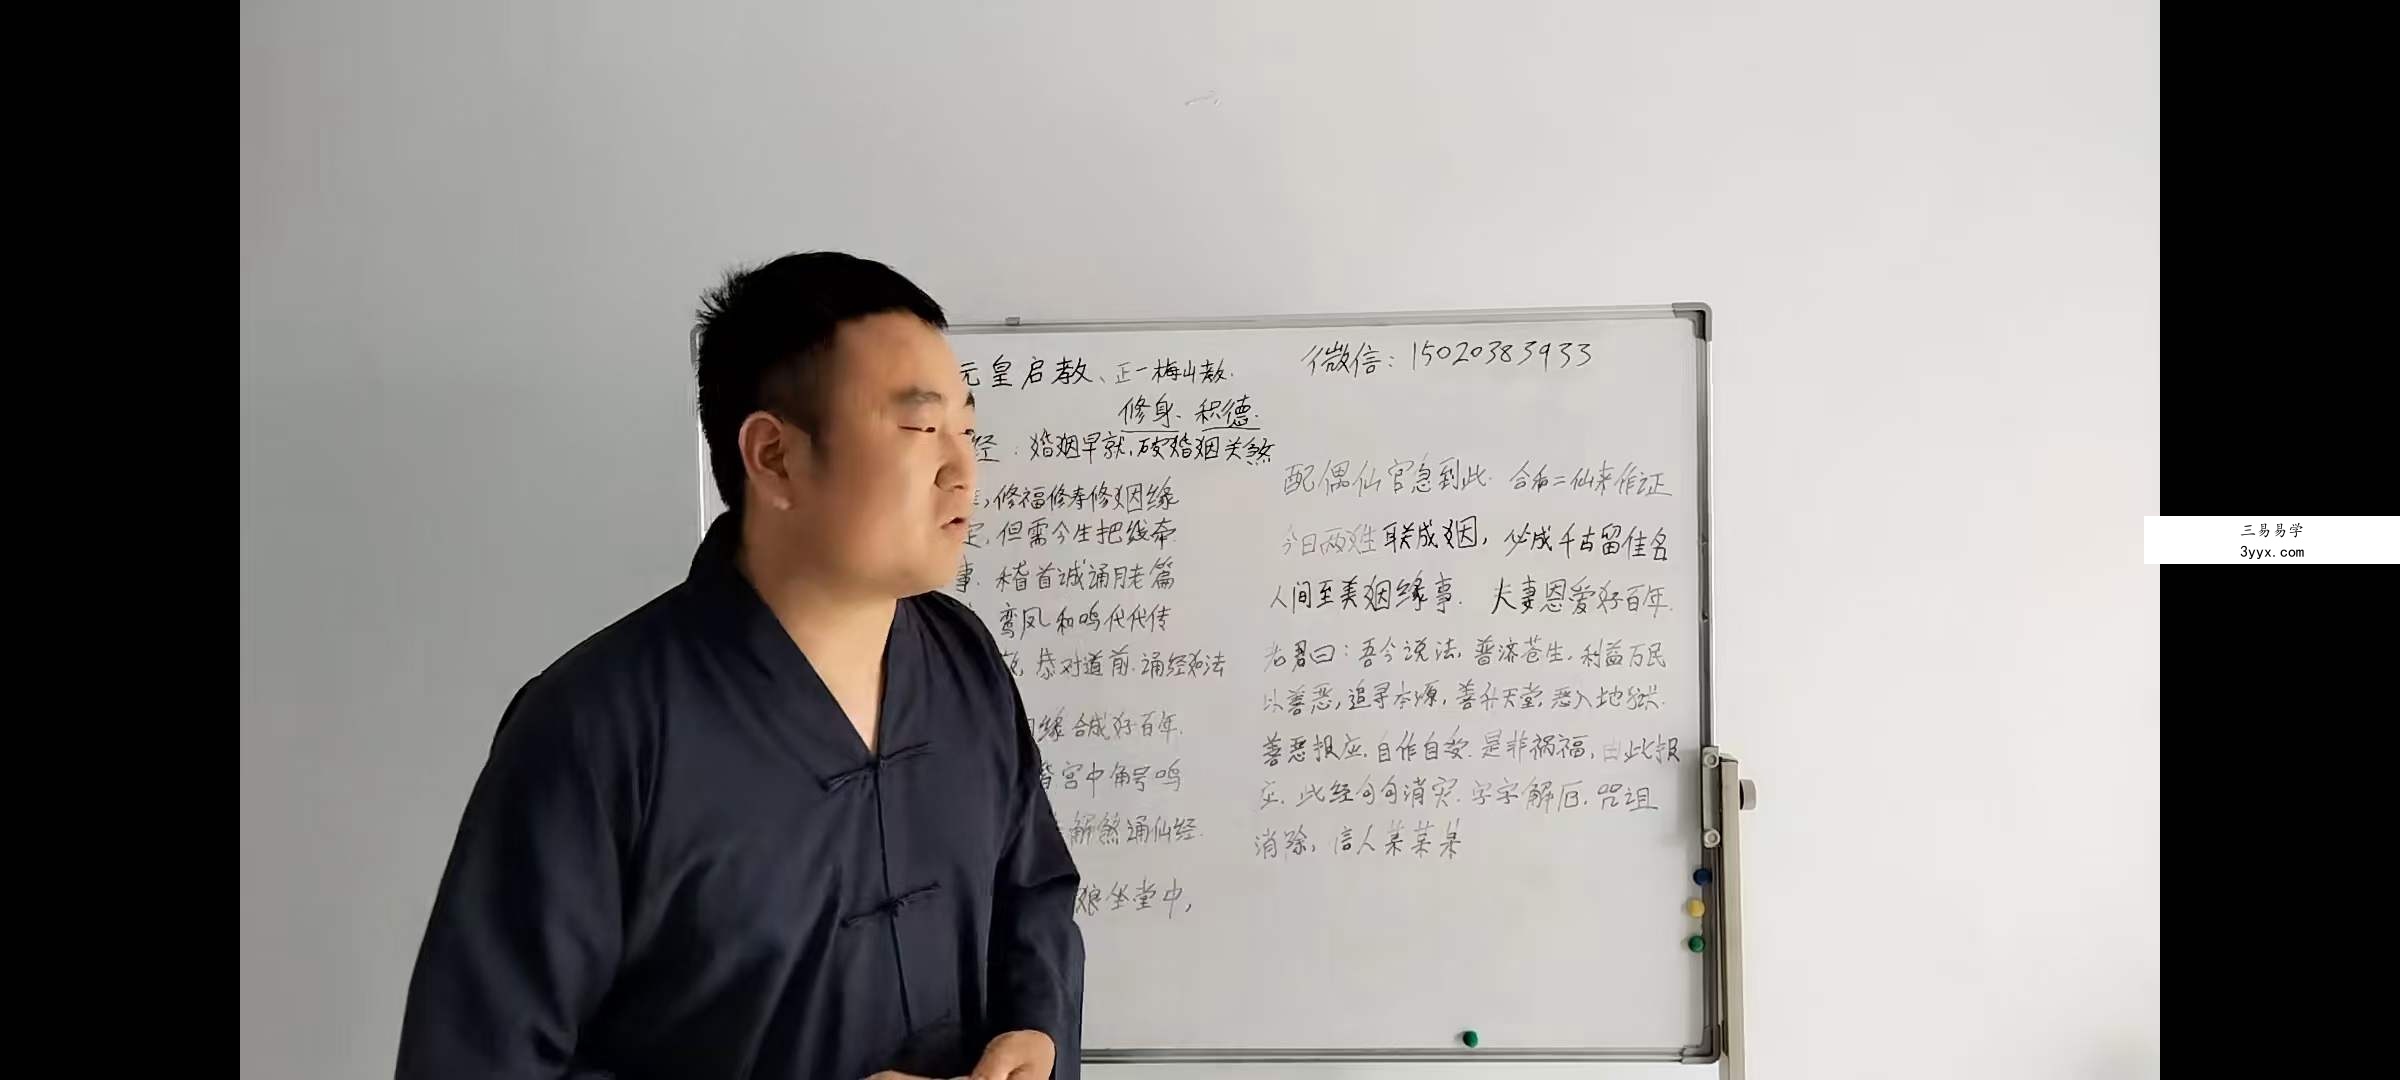 元皇启教、正一梅山教.
微信: 15020383933
修身. 积德.
经: 婚姻早就, 破婚姻关煞
修福修寿修姻缘
定, 但需今生把线牵
事. 稽首诚诵月老篇
鸾凤和鸣代代传
恭对道前. 诵经如法
姻缘合成好百年.
宫中角号鸣
解煞诵仙经.
娘坐堂中,
配偶仙官急到此. 合和二仙来作证
今日两姓联成姻, 必成千古留佳名
人间至美姻缘事. 夫妻恩爱好百年.
老君曰: 吾今说法, 普济苍生, 利益万民
以善恶, 追寻本源, 善升天堂, 恶入地狱.
善恶报应. 自作自受. 是非祸福, 由此报
应. 此经句句消灾. 字字解厄. 咒诅
消除, 信人某某某
三易易学
3yyx.com